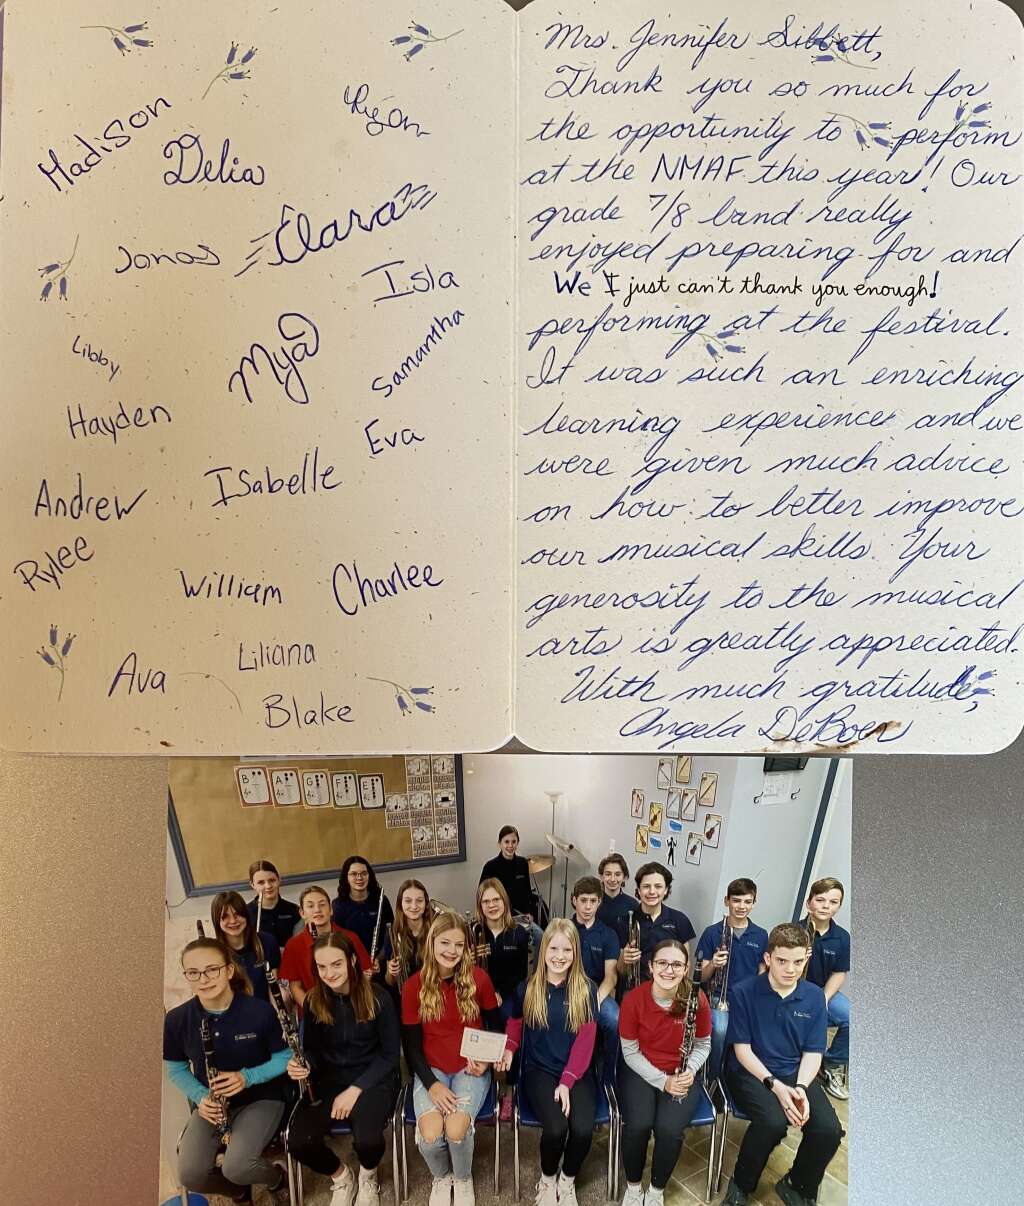 Madison
Delia
Ryan
Jonas
Clara
Isla
Libby
Mya
Samantha
Hayden
Eva
Andrew
Isabelle
Rylee
William
Charlee
Ava
Liliana
Blake
Mrs. Jennifer Sibbett,
Thank you so much for
the opportunity to perform
at the NMAF this year! Our
grade 7/8 band really
enjoyed preparing for and
We I just can't thank you enough!
performing at the festival.
It was such an enriching
learning experience and we
were given much advice
on how to better improve
our musical skills. Your
generosity to the musical
arts is greatly appreciated.
With much gratitude,
Angela DeBoer
B A G F E